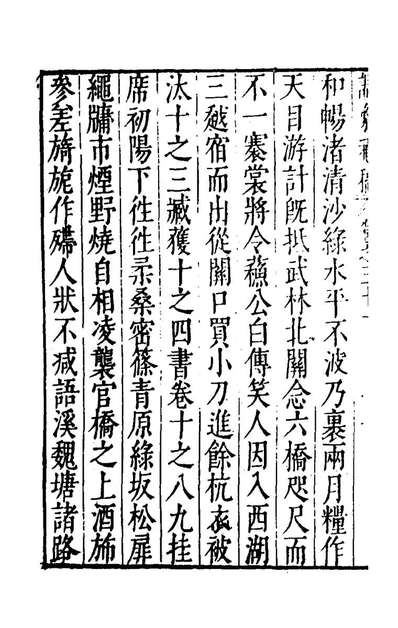 和暢渚清沙綠水平不波乃裹兩月糧作
天目游計旣抵武林北關念六橋咫尺而
不一褰裳將令蘓公白傳笑人因入西湖
三越宿而出從關口買小刀進餘杭衣被
汰十之三臧獲十之四書卷十之八九挂
席初陽下徃徃柔桑密篠青原綠坂松扉
繩牖市煙野燒自相凌襲官橋之上酒斾
參差旖旎作殢人狀不减語溪魏塘諸路